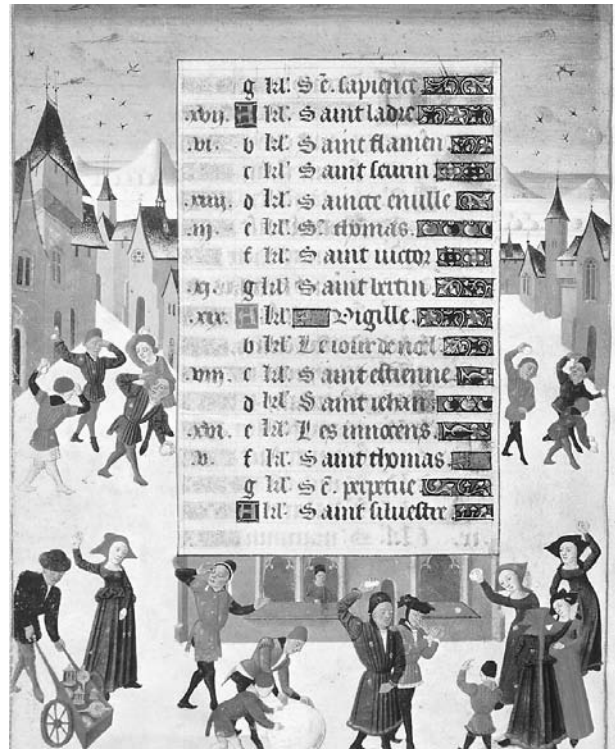 g kl'. S ē. sapience
.xvij. A kl'. Saint ladre
.vi. b kl'. Saint flamen
c kl'. Saint seurin
.xiiij. d kl'. Saincte enille
.iij. e kl'. S. thomas.
f kl'. Saint uictor
.xi. g kl'. Saint bertin
.xix. A kl'. Vigille.
b kl'. Le iour de noel
.viij. c kl'. Saint estienne
d kl'. Saint iehan
.xvi. e kl'. Les innocens.
.v. f kl'. Saint thomas.
g kl'. S ē. perpetue
A kl'. Saint siluestre